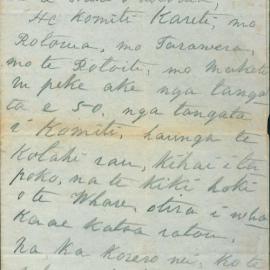 He Komiti Kareti, mo
Rotorua, mo Tarawera,
mo te Rotoiti, mo Maketu
peke ake nga tanga
ta e 50, nga tangata
i Komiti, haunga te
Kotahi rau, kihai i ta
poko, na te kiki hoki
o te Whare, otira i wha
kaae katoa ratou.
Na ka korero nei, ko te